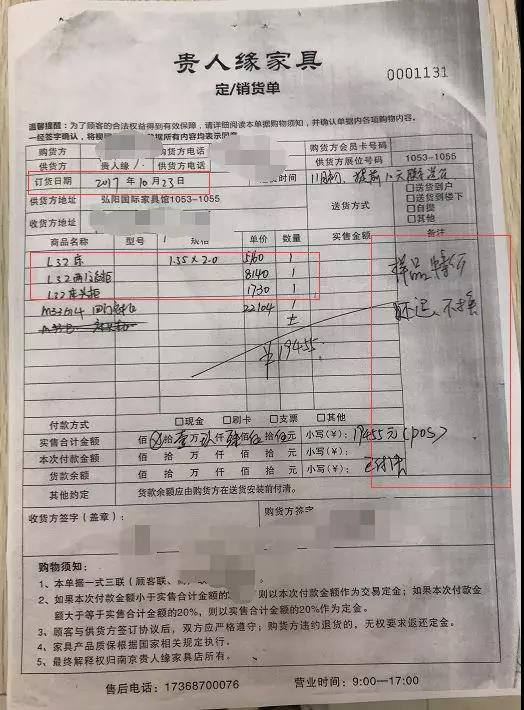 贵人缘家具
0001131
定/销货单
温馨提醒：为了顾客的合法权益得到有效保障，请详细阅读本单据购物须知，并确认单据内各项购物内容。
一经签字确认，将视 据所有内容均表示同意
购货方 购货方电话 购货方会员卡号码
供货方 贵人缘 供货方电话 供货方展位号码 1053-1055
订货日期 2017年10月23日 货时间 11月初，提前 天联系送货
供货方地址 弘阳国际家具馆1053-1055 送货方式 □送货到户 □送货到楼下 □自提 □其他
收货方地址
商品名称 型号 规格 单价 数量 实售金额 备注
L32床 1.35×2.0 5160 1
L32 8140 1
L32床头柜 1730 1
22104 1
¥19455.
样品
不换
付款方式 □现金 □刷卡 □支票 □其他
实售合计金额 佰 拾壹万玖仟肆佰伍拾伍元 小写(¥)：19455元(pos)
本次付款金额 佰 拾 万 仟 佰 拾 元 小写(¥)：
货款余额 佰 拾 万 仟 佰 拾 元 小写(¥)：
其他约定 货款余额应由购货方在送货安装前付清。
收货方签字（盖章）： 购货方签字
购物须知：
1、本单据一式三联（顾客联、
2、如果本次付款金额小于实售合计金额的 则以本次付款金额作为交易定金；如果本次付款金
额大于等于实售合计金额的20%，则以实售合计金额的20%作为定金。
3、顾客与供货方签订协议后，双方应严格遵守；购货方违约退货的，无权要求返还定金。
4、家具产品质保根据国家相关规定执行。
5、最终解释权归南京贵人缘家具店所有。
售后电话：17368700076 营业时间：9:00—17:00